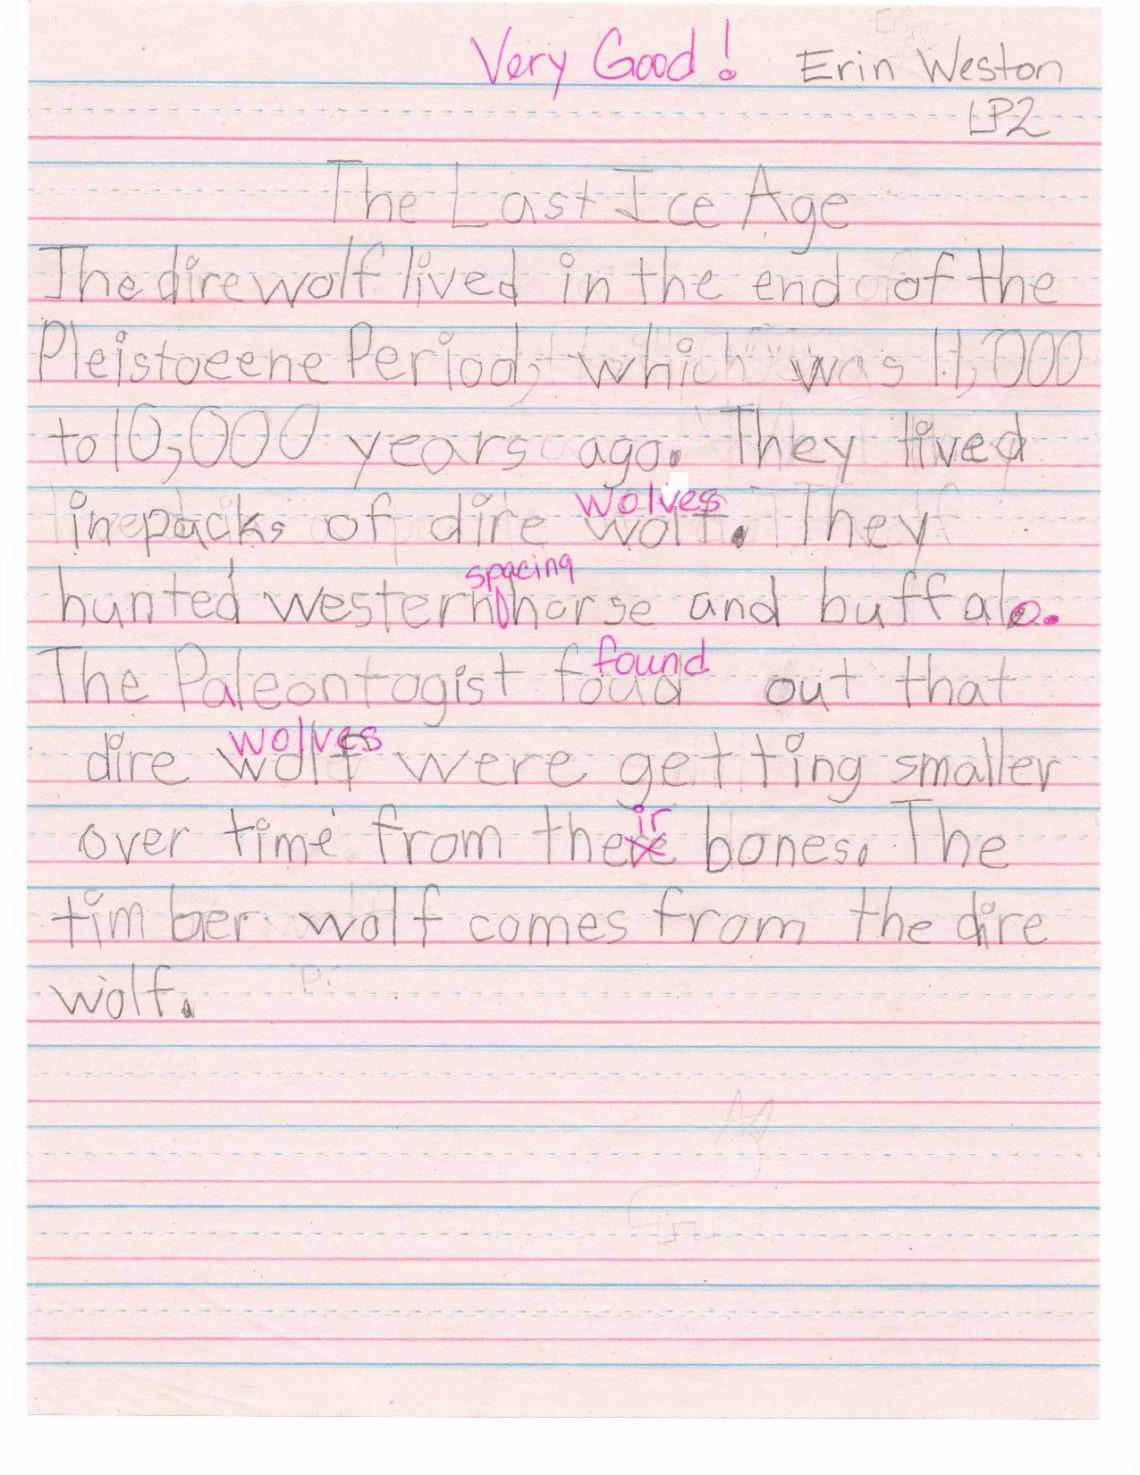 Very Good! Erin Weston
LP2
The Last Ice Age
The dire wolf lived in the end of the
Pleistoeene Period, which was 11,000
to 10,000 years ago. They lived
in packs of dire wolf. They
wolves
hunted western horse and buffalo.
spacing
The Paleontogist foud out that
found
dire wolf were getting smaller
wolves
over time from there bones. The
ir
timber wolf comes from the dire
wolf.